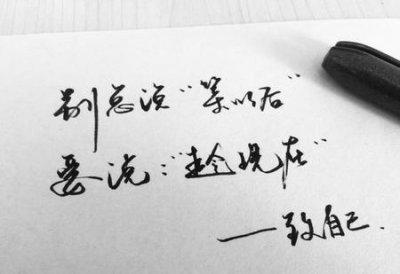 别总说“等以后”
要说:“趁现在”
——致自己.